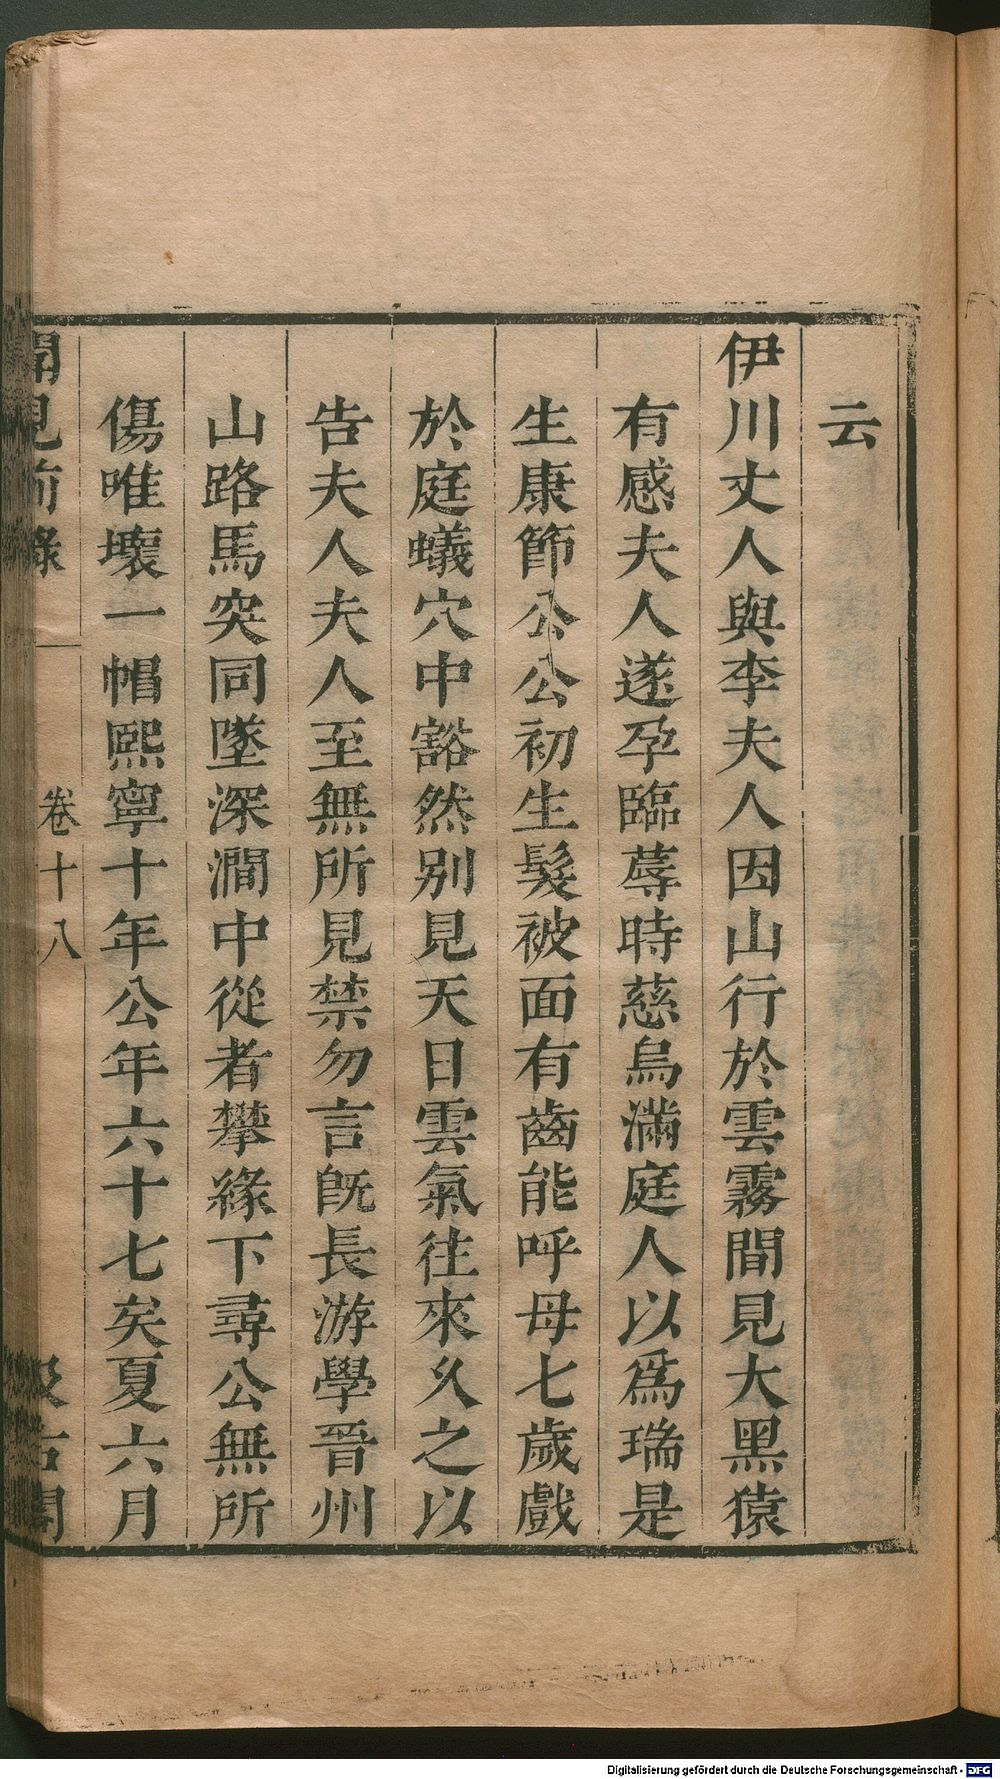 云
伊川丈人與李夫人因山行於雲霧間見大黑猿
有感夫人遂孕臨蓐時慈烏滿庭人以爲瑞是
生康節公公初生髮被面有齒能呼母七歲戲
於庭蟻穴中豁然别見天日雲氣往來久之以
告夫人夫人至無所見禁勿言旣長游學晉州
山路馬突同墜深澗中從者攀緣下尋公無所
傷唯壞一帽熙寧十年公年六十七矣夏六月
聞見前錄 卷十八 汲古閣
Digitalisierung gefördert durch die Deutsche Forschungsgemeinschaft - DFG